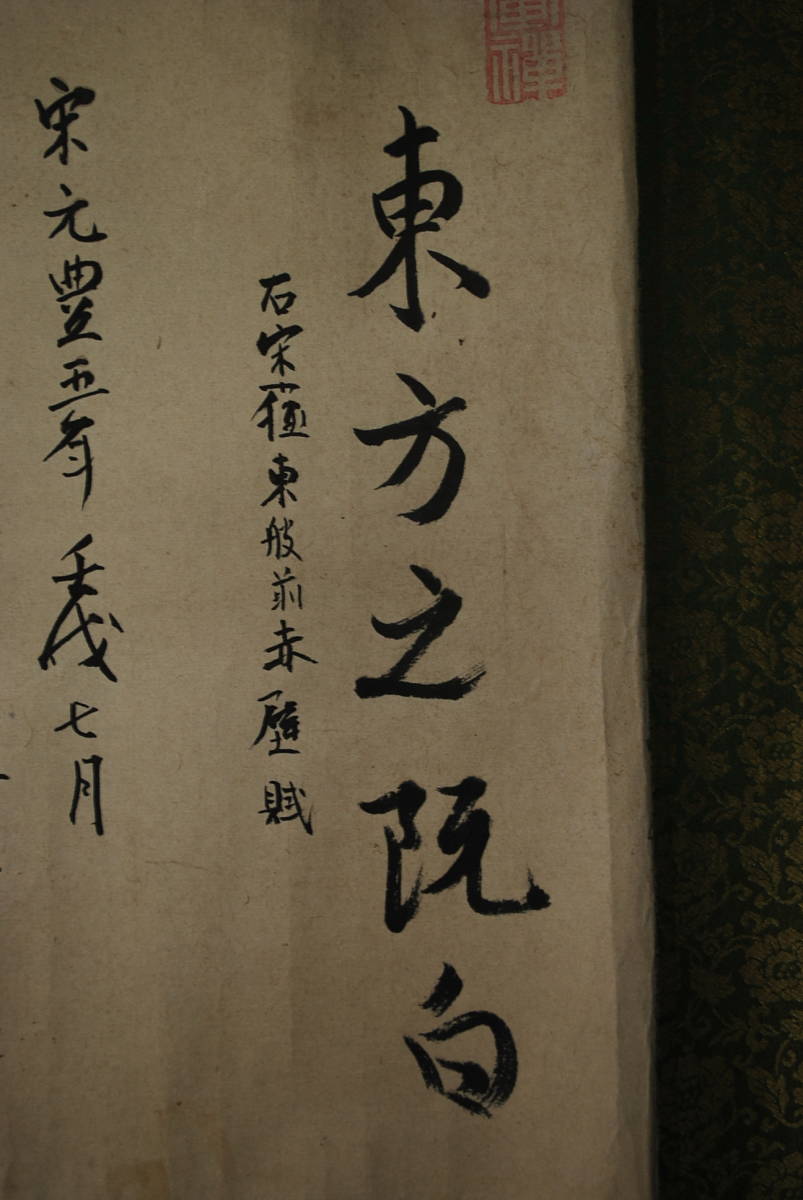 東方之既白
右宋蘓東般前赤壁賦
宋元豊五年壬戌七月